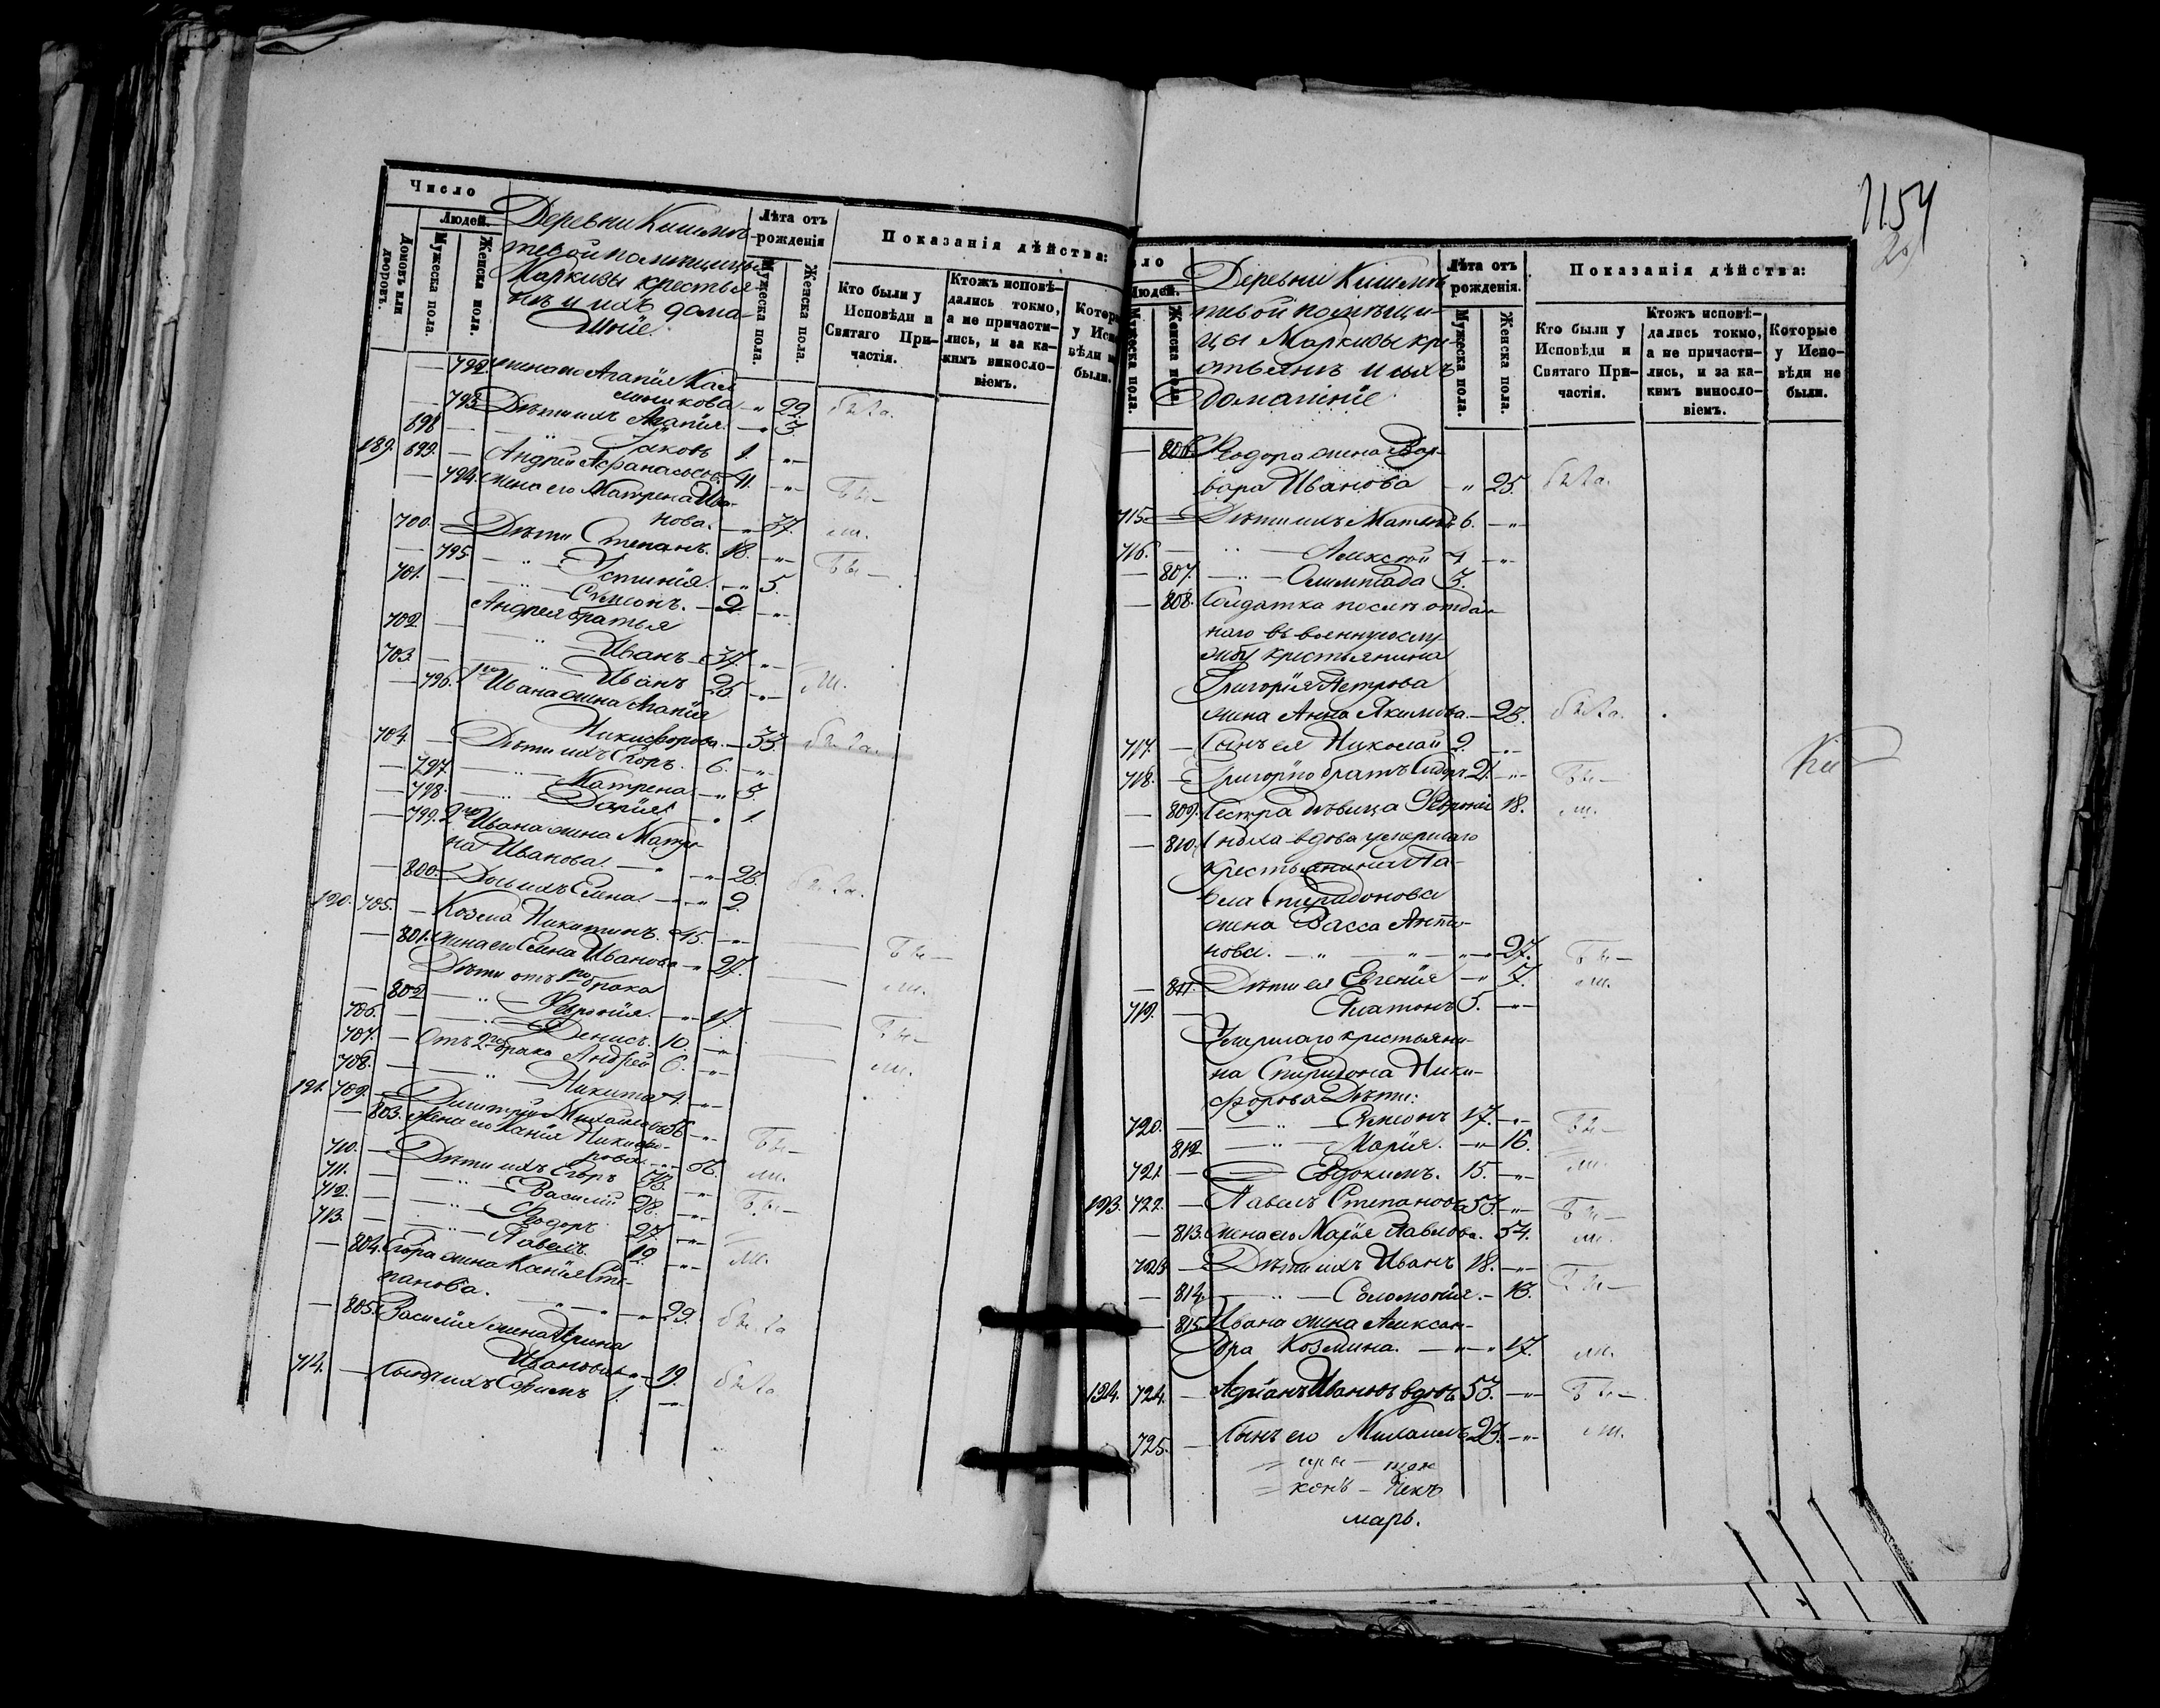 Число
Людей.
Домовъ или дворовъ.
Мужеска пола.
Женска пола.
Деревни Кишмя-
тевой помѣщицы
Маркизы крестья-
не и ихъ дома-
шніе.
Лѣта отъ рожденія
Мужеска пола.
Женска пола.
Показанія дѣйства:
Кто были у Исповѣди и Святаго Причастія.
Ктожъ исповѣдались токмо, а не причастились, и за какимъ винословіемъ.
— 792. жена его Агапія
29. была.
— 793. Дѣти ихъ Агапія — " 3.
698 — Іаковъ 1. — " —
189. 699. — Андрей Афанасьевъ 41. — " — Бы—
— 794. жена его Матрена Ива-
нова. — " 37. ли.
700. — Дѣти Степанъ. 18. — " — Бы—
— 795. — " — Устинія — " 5.
701. — " — Симеонъ. — 2 — " —
Андрея братья
702 — " — Иванъ 37. — " —
703. — " — Иванъ 25 — " — ли.
— 796. 1го Ивана жена Агапія
Никифорова. — 33. была.
704. — Дѣти ихъ Егоръ. 6. — " —
— 797. — " — Матрена — " 3.
— 798. — " — Дарія — " 1.
— 799. 2го Ивана жена Матре-
на Иванова. — " — " 25. была.
— 800. Дочь ихъ Елена — " — " 2
190. 705. — Козма Никитинъ. 45. — " — Бы—
— 801. жена его Елена Иванова — " 27. ли.
Дѣти отъ 1го брака
— 802 — " — Февронія. — " 17. Бы—
706. — " — Денисъ. 10 — " — ли.
707. — Отъ 2го брака Андрей 6. — " —
708. — " — Никита 4. — " —
191. 709. — Димитрій Михайловъ 56 — " — Бы—
— 803. жена его Ксенія Никифо-
рова. — " — 56. ли.
710. — Дѣти ихъ Егоръ 33. — " — Бы—
711. — " — Василій 28. — " —
712. — " — Ѳеодоръ 27. — " —
713. — " — Павелъ. 19. — " — ли.
— 804. Егора жена Ксенія Сте-
панова. — " — " 29. была
— 805. Василія жена Ирина
Иванова — " — 19. была
714. — Сынъ ихъ Ефимъ 1. — " —
1154
20
Людей.
Мужеска пола.
Женска пола.
Деревни Кишмя-
тевой помѣщи-
цы Маркизы кре-
стьянъ и ихъ
домашніе
Лѣта отъ рожденія.
Мужеска пола.
Женска пола.
Показанія дѣйства:
Кто были у Исповѣди и Святаго Причастія.
Ктожъ исповѣдались токмо, а не причастились, и за какимъ винословіемъ.
Которые у Исповѣди не были.
— 806. Ѳеодора жена Вар-
вара Иванова — " 25. была.
715. — Дѣти ихъ Матвѣй 6. — " —
716. — " — Алексѣй 4 — " —
— 807. — " — Олимпіада 3.
— 808. Солдатка послѣ отдан-
наго въ военную слу-
жбу крестьянина
Григорія Петрова
жена Анна Якимова. — 25. была.
717. — Сынъ ея Николай 2. — " —
718. — Григорія братъ Сидоръ 21. — " — Бы—
— 809. Сестра дѣвица Февронія 18. ли.
— 810. Сноха вдова умершаго
крестьянина Па-
вла Спиридонова
жена Васса Анти-
нова. — " — " — " — 27. Бы—
— 811. Дѣти ея Евгенія — " 7. ли.
719. — Платонъ 5. — " —
Умершаго крестьяни-
на Спиридона Ники-
форова Дѣти:
720. — " — Симеонъ 17. — " — Бы—
812 — " — Марія. — " 16.
721. — Евдокимъ. 15. — " — ли.
193. 722. — Павелъ Степановъ 53. — " — Бы—
— 813. жена его Марія Павлова. 54. ли.
723 — Дѣти ихъ Иванъ 18. — " — Бы—
— 814. — " — Соломонія. — 13.
— 815. Ивана жена Алексан-
дра Козмина. — " — " 17. ли.
194. 724. — Адріанъ Ивановъ вдовъ 53. — " — Бы—
725. — Сынъ его Михаилъ 23. — " — ли.